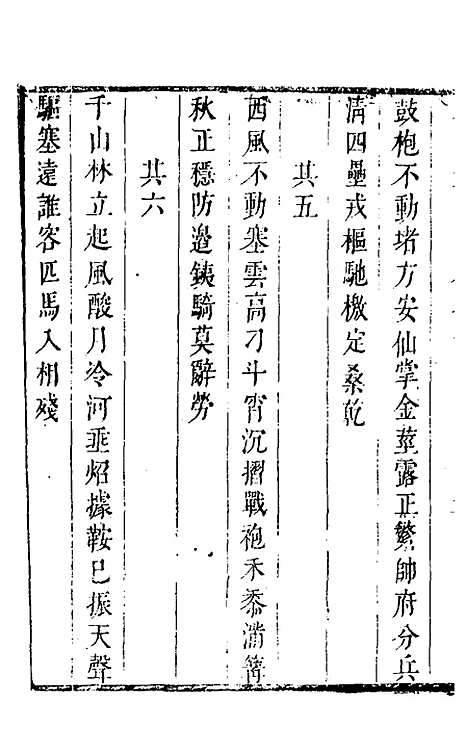 鼓枹不動堵方安仙掌金莖露正繁帥府分兵
清四壘戎樞馳檄定桑乾
其五
西風不動塞雲高刁斗宵沉摺戰袍禾黍滿篝
秋正穩防邉銕騎莫辭勞
其六
千山林立起風酸月冷河埀炤據鞍已振天聲
驅塞遠誰容匹馬入相殘